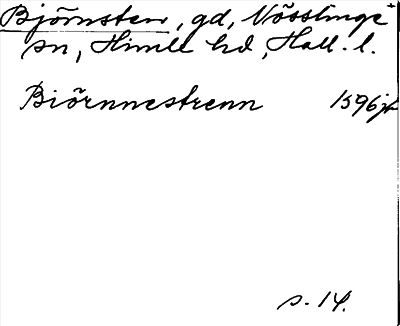 Björnsten, gd, Nösslinge
sn, Himle hd, Hall. l.
Biörnnestrenn 1596 jb
s. 14.